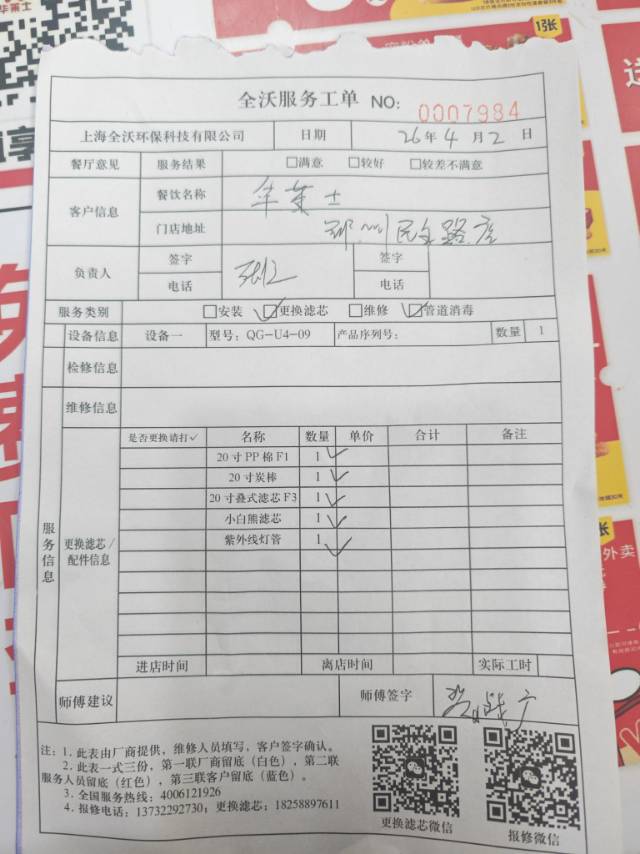 华莱士
1张
全沃服务工单 NO: 0007984
上海全沃环保科技有限公司 日期 26年4月2日
餐厅意见 服务结果 □满意 □较好 □较差不满意
客户信息 餐饮名称 华莱士
门店地址 郑州民主路店
负责人 签字 签字
电话 电话
服务类别 □安装 ☑更换滤芯 □维修 ☑管道消毒
设备信息 设备一 型号: QG-U4-09 产品序列号: 数量 1
检修信息
维修信息
服务信息 更换滤芯/配件信息
是否更换请打✓ 名称 数量 单价 合计 备注
20寸PP棉F1 1 ✓
20寸炭棒 1 ✓
20寸叠式滤芯F3 1 ✓
小白熊滤芯 1 ✓
紫外线灯管 1 ✓
进店时间 离店时间 实际工时
师傅建议 师傅签字
注: 1. 此表由厂商提供，维修人员填写，客户签字确认。
2. 此表一式三份，第一联厂商留底（白色）、第二联
服务人员留底（红色）、第三联客户留底（蓝色）。
3. 全国服务热线: 4006121926
4. 报修电话: 13732292730; 更换滤芯: 18258897611
更换滤芯微信 报修微信
外卖